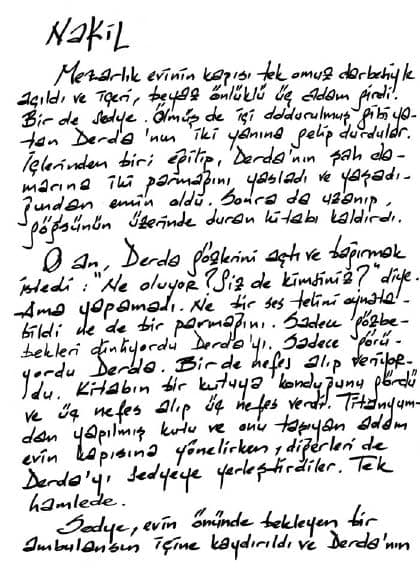 NAKİL
Mezarlık evinin kapısı tek omuz darbesiyle
açıldı ve içeri, beyaz önlüklü üç adam girdi.
Bir de sedye. Ölmüş de içi doldurulmuş gibi ya-
tan Derda'nın iki yanına gelip durdular.
İçlerinden biri eğilip, Derda'nın şah da-
marına iki parmağını yasladı ve yaşadı-
ğından emin oldu. Sonra da uzanıp,
göğsünün üzerinde duran kitabı kaldırdı.
O an, Derda gözlerini açtı ve bağırmak
istedi: "Ne oluyor? Siz de kimsiniz?" diye.
Ama yapamadı. Ne bir ses telini oynata-
bildi ne de bir parmağını. Sadece gözbe-
bekleri dinliyordu Derda'yı. Sadece görü-
yordu Derda. Bir de nefes alıp veriyor-
du. Kitabın bir kutuya konduğunu gördü
ve üç nefes alıp üç nefes verdi. Titanyum-
dan yapılmış kutu ve onu taşıyan adam
evin kapısına yönelirken, diğerleri de
Derda'yı sedyeye yerleştirdiler. Tek
hamlede.
Sedye, evin önünde bekleyen bir
ambulansın içine kaydırıldı ve Derda'nın